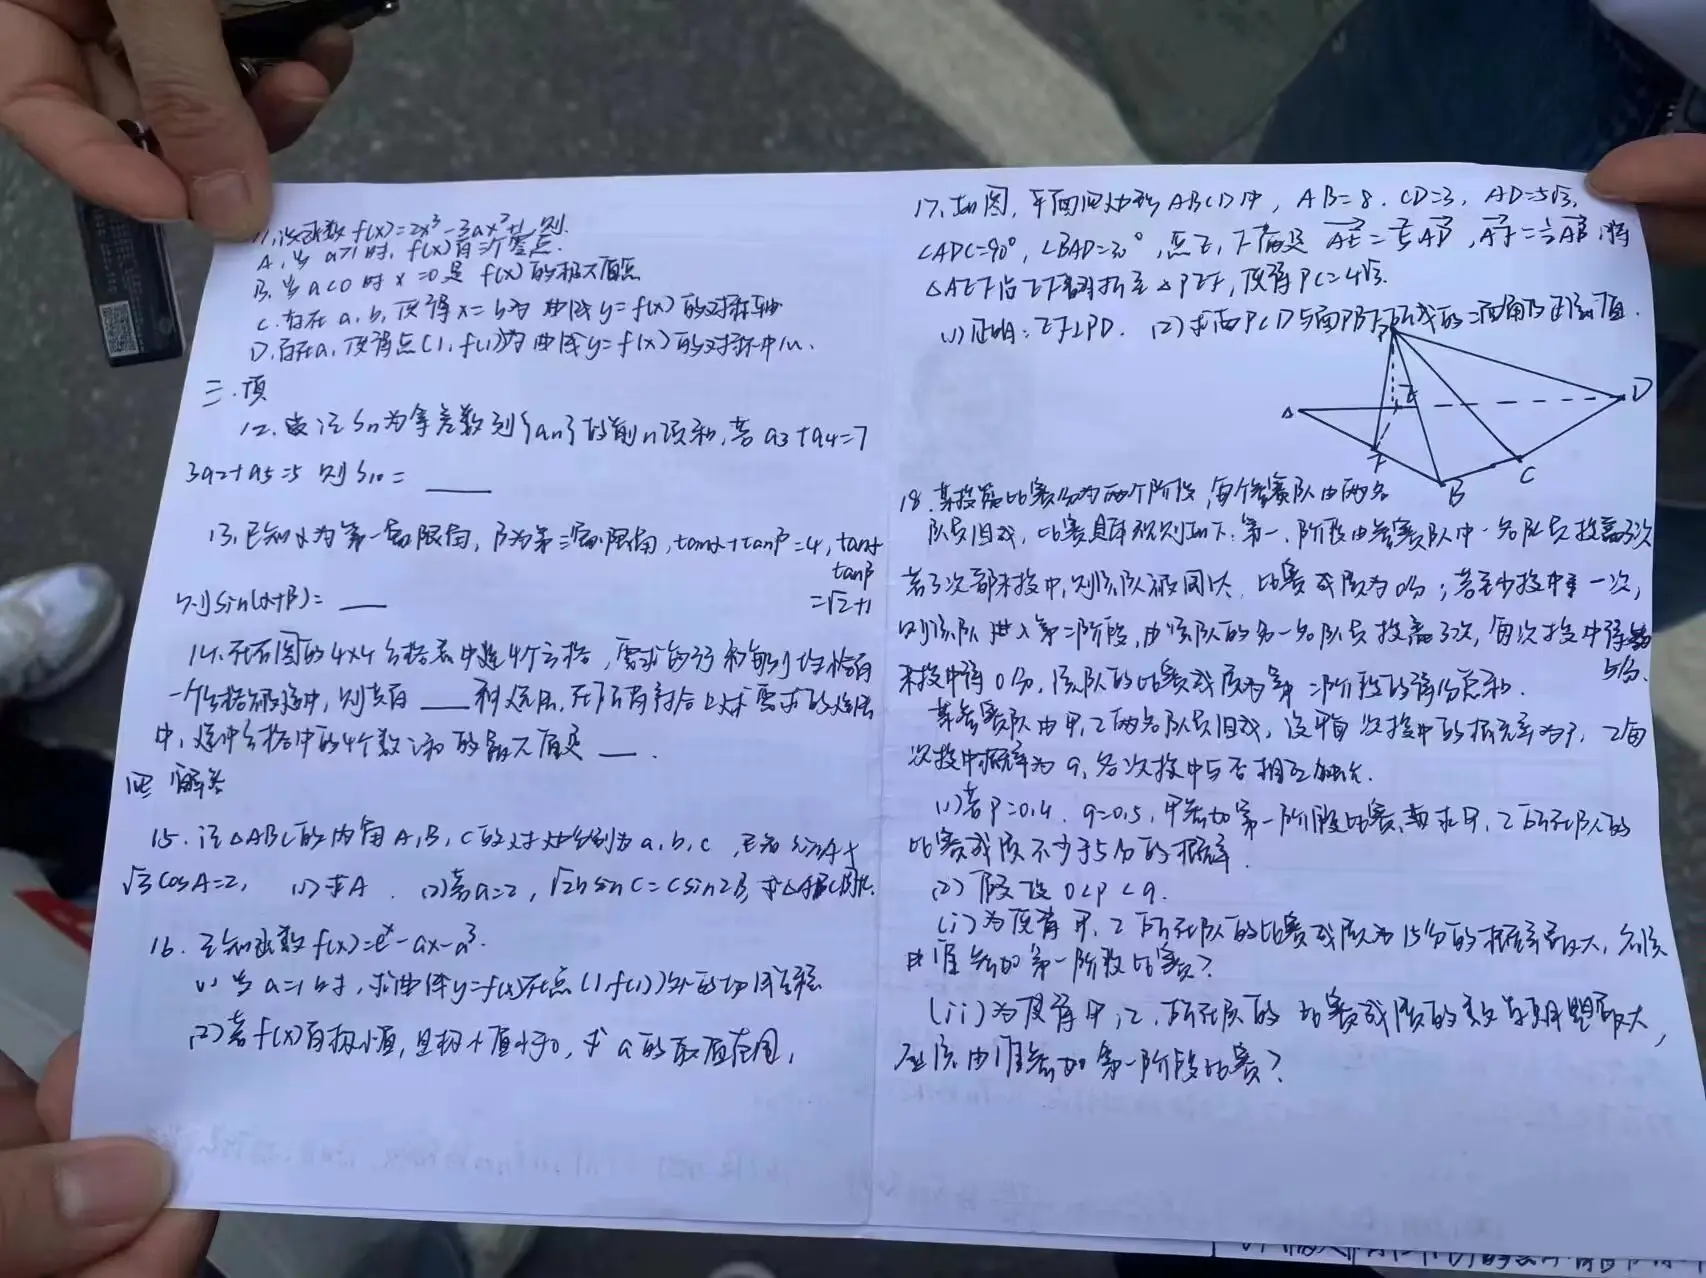 11.设函数f(x)=2x³-3ax²+1,则
A.当a>1时,f(x)有三个零点.
B.当a<0时x=0是f(x)的极大值点
C.存在a,b,使得x=b为曲线y=f(x)的对称轴
D.存在a,使得点(1,f(1))为曲线y=f(x)的对称中心.
三.填
12.设 记Sn为等差数列{an}的前n项和,若a3+a4=7
3a2+a5=5 则S10=____
13.已知α为第一象限角,β为第三象限角,tanα+tanβ=4,tanα
tanβ
=√2+1
则sin(α+β)=___
14.在右图的4×4方格表中选4个方格,要求每行和每列均恰有
一个方格被选中,则共有____种选法,在所有符合上述要求的选法
中,选中方格中的4个数之和的最大值是___.
四 解答
15.记△ABC的内角A,B,C的对边分别为a,b,c,已知sinA+
√3cosA=2, (1)求A. (2)若a=2,√2bsinC=csin2B,求△ABC周长.
16.已知函数f(x)=eˣ-ax-a³.
(1)当a=1时,求曲线y=f(x)在点(1,f(1))处的切线方程
(2)若f(x)有极小值,且极小值小于0,求a的取值范围,
17.如图,平面四边形ABCD中,AB=8.CD=3,AD=5√3,
∠ADC=90°,∠BAD=30°,点E,F满足AE=2/5AD,AF=1/2AB,将
△AEF沿EF翻折至△PEF,使得PC=4√3.
(1)证明:EF⊥PD. (2)求面PCD与面PBF所成的二面角的正弦值.
P
A
E
D
F
B
C
18.某投篮比赛分为两个阶段,每个参赛队由两名
队员组成,比赛具体规则如下:第一阶段由参赛队中一名队员投篮3次
若3次都未投中,则该队被淘汰,比赛成绩为0分;若至少投中一次,
则该队进入第二阶段,由该队的另一名队员投篮3次,每次投中得
5分.
未投中得0分,该队的比赛成绩为第二阶段的得分总和.
某参赛队由甲,乙两名队员组成,设甲每次投中的概率为p,乙每
次投中概率为q,各次投中与否相互独立.
(1)若p=0.4,q=0.5,甲参加第一阶段比赛,求甲,乙所在队的
比赛成绩不少于5分的概率.
(2)假设0<p<q.
(i)为使得甲,乙所在队的比赛成绩为15分的概率最大,应该
由谁参加第一阶段比赛?
(ii)为使得甲,乙,所在队的比赛成绩的数学期望最大,
应该由谁参加第一阶段比赛?